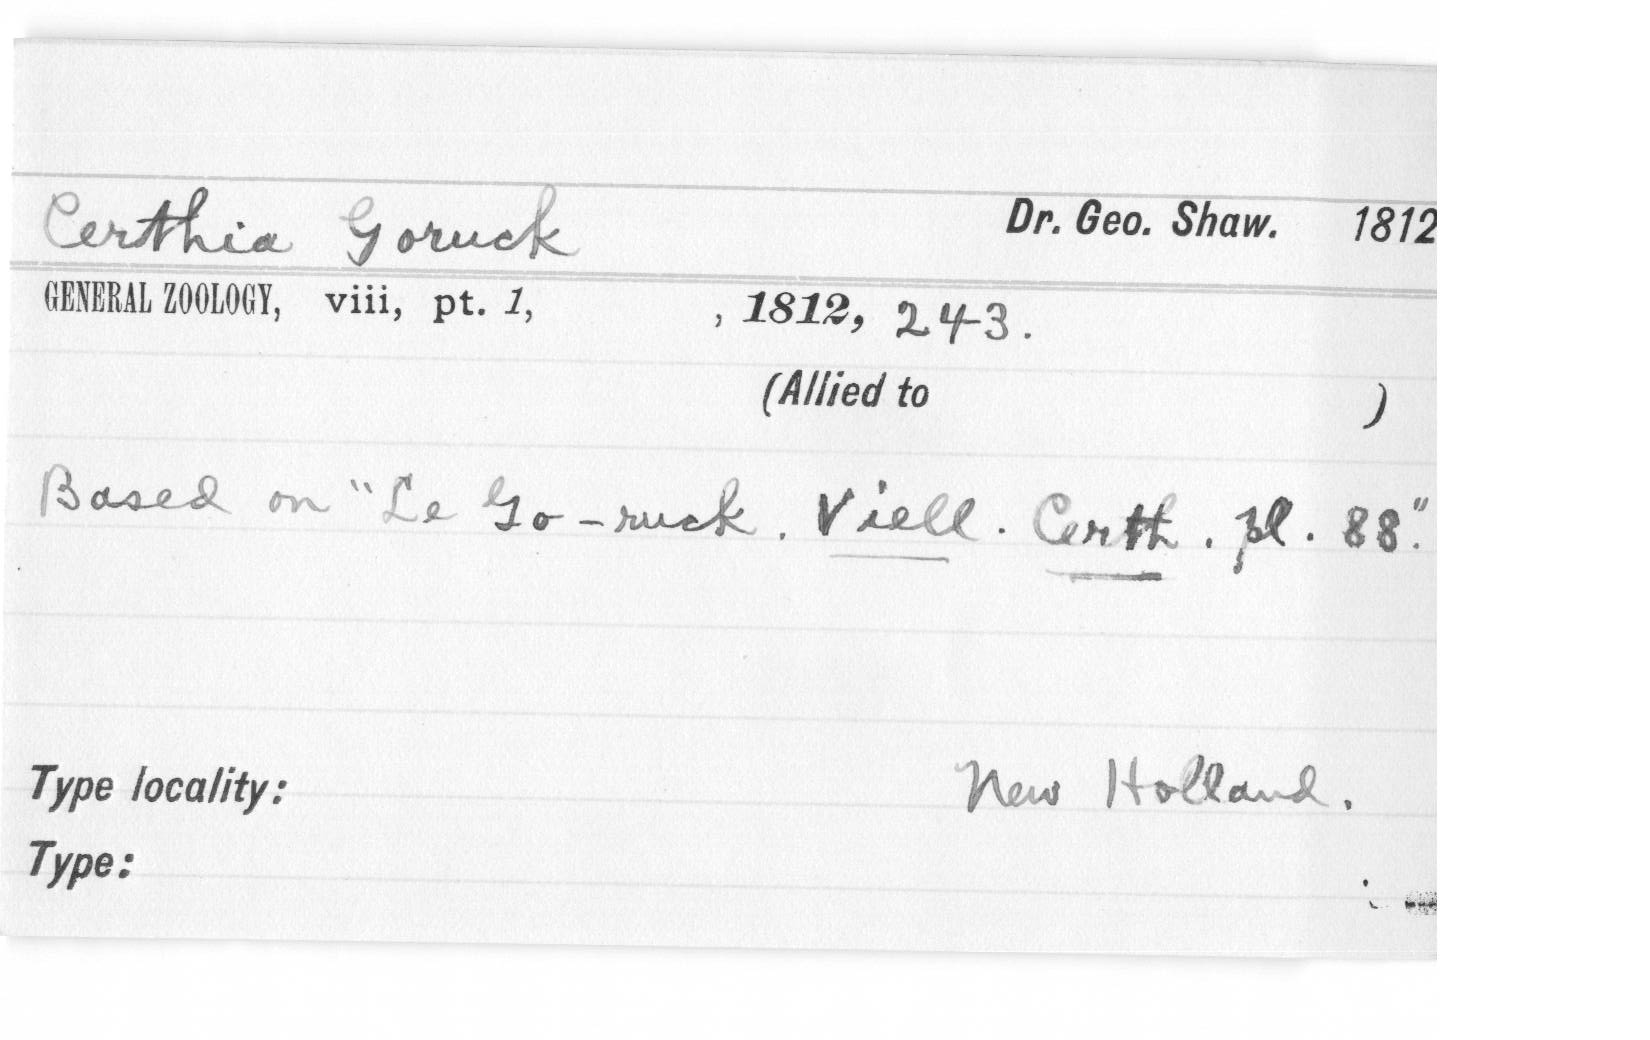 Certhia Goruck Dr. Geo. Shaw. 1812
GENERAL ZOOLOGY, viii, pt. 1, , 1812, 243.
(Allied to )
Based on "Le Go-ruck. Viell. Certh. pl. 88".
Type locality: New Holland.
Type: